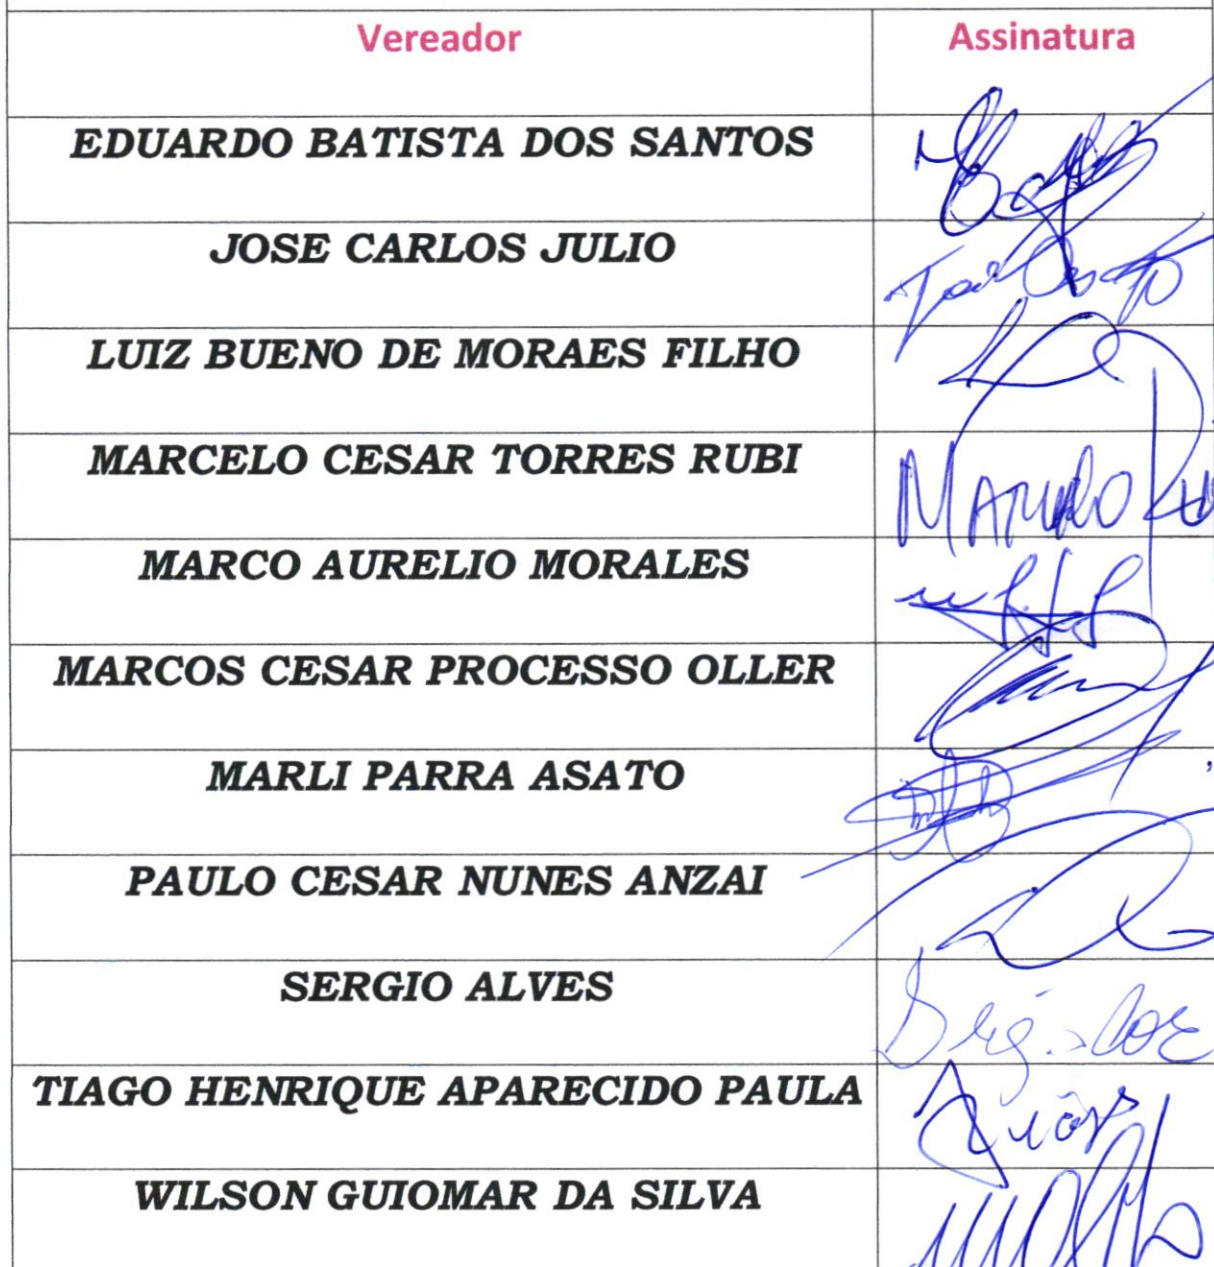 Vereador Assinatura
EDUARDO BATISTA DOS SANTOS
JOSE CARLOS JULIO
LUIZ BUENO DE MORAES FILHO
MARCELO CESAR TORRES RUBI
MARCO AURELIO MORALES
MARCOS CESAR PROCESSO OLLER
MARLI PARRA ASATO
PAULO CESAR NUNES ANZAI
SERGIO ALVES
TIAGO HENRIQUE APARECIDO PAULA
WILSON GUIOMAR DA SILVA